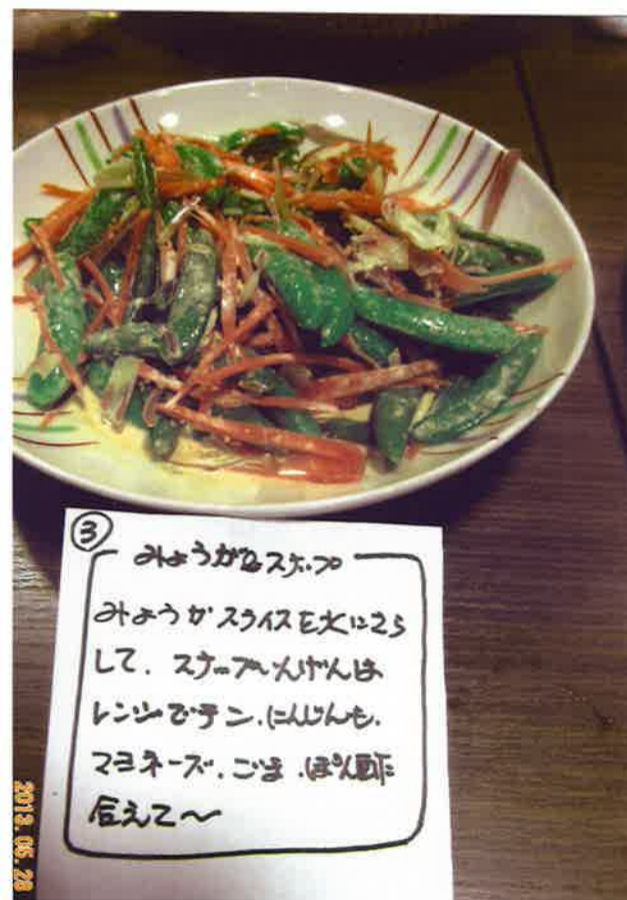 ③
みょうがなスナップ
みょうがスライスを水にさら
して、スナップいんげんは
レンジでチン、にんじんも、
マヨネーズ、ごま、ぽん酢に
合えて〜
2013.05.28